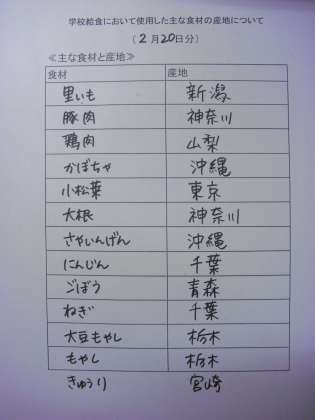 学校給食において使用した主な食材の産地について
（2月20日分）
≪主な食材と産地≫
食材 産地
里いも 新潟
豚肉 神奈川
鶏肉 山梨
かぼちゃ 沖縄
小松菜 東京
大根 神奈川
さやいんげん 沖縄
にんじん 千葉
ごぼう 青森
ねぎ 千葉
大豆もやし 栃木
もやし 栃木
きゅうり 宮崎